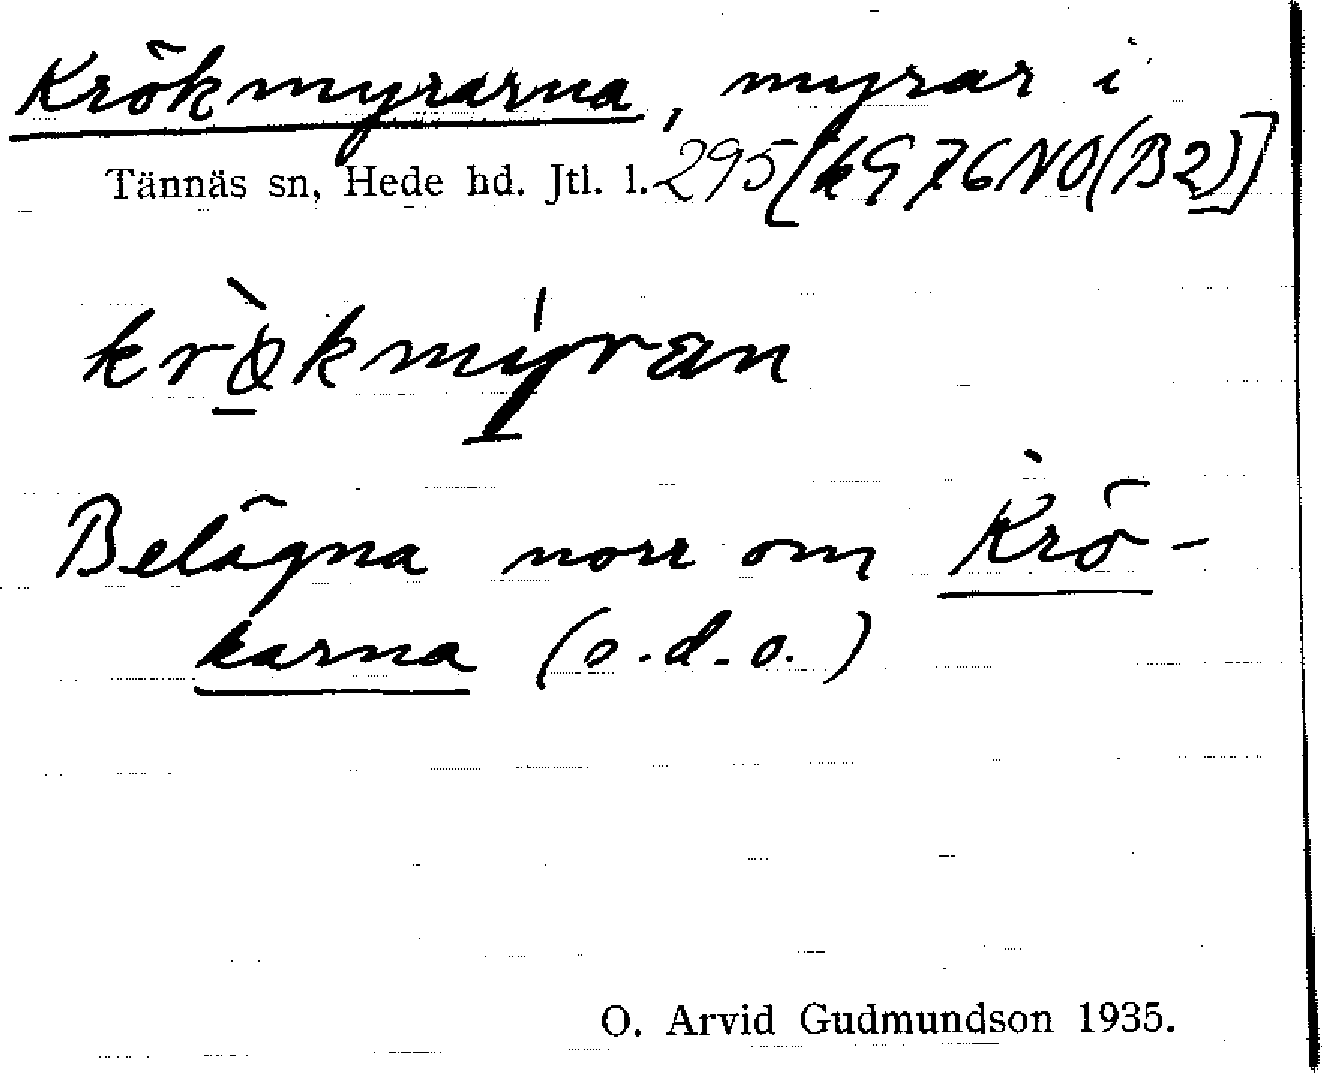 Krökmyrarna, myrar i
Tännäs sn, Hede hd. Jtl. l. 295 [k976NO(B2)]
krø̀kmy̍ran
Belägna norr om Krö-
karna (o.d.o.)
O. Arvid Gudmundson 1935.